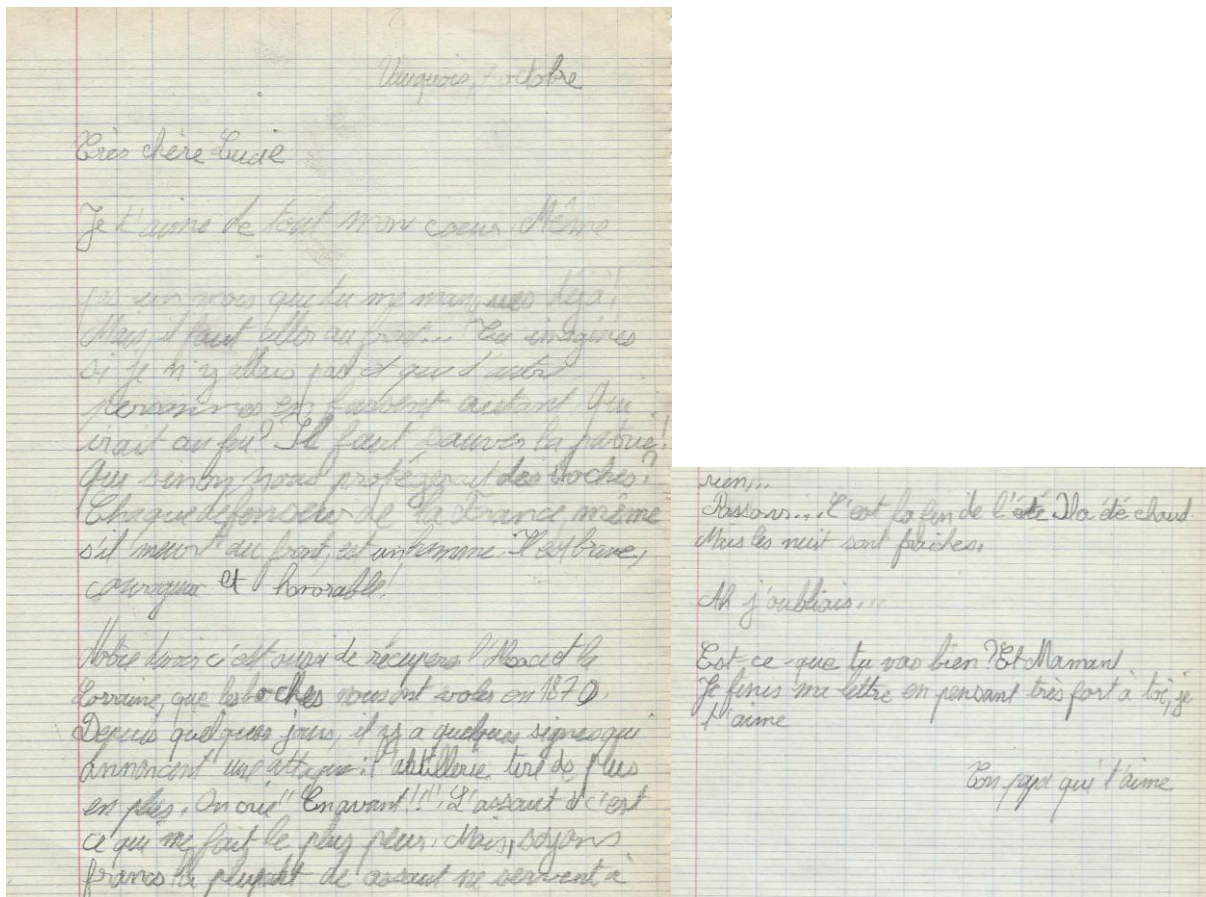 Vauquois, 7 octobre
Très chère Lucie
Je t'aime de tout mon coeur. Même
pas un mois que tu me manques déjà!
Mais, il faut aller au front... Tu imagines
si je n'y allais pas et que d'autre
personnes en fassent autant. Qui
irait au feu? Il faut sauver la patrie!
Qui sinon nous protégerait des boches?
Chaque défenseur de la France, même
s'il meurt au front, est un homme. Il est brave,
courageux et honorable!
Notre devoir c'est aussi de récupérer l'Alsace et la
Lorraine, que les boches nous ont voler en 1870.
Depuis quelques jours, il y a quelques signes qui
annoncent une attaque: l'artillerie tire de plus
en plus. On crie "En avant!!!". L'assaut c'est
ce qui me fait le plus peur. Mais, soyons
francs la plupart de assaut ne servent à
rien...
Passons... C'est la fin de l'été Il a été chaud.
Mais les nuit sont fraîches.
Ah j'oubliais...
Est-ce-que tu vas bien? Et Maman?
Je finis ma lettre en pensant très fort à toi, je
t'aime
Ton papa qui t'aime